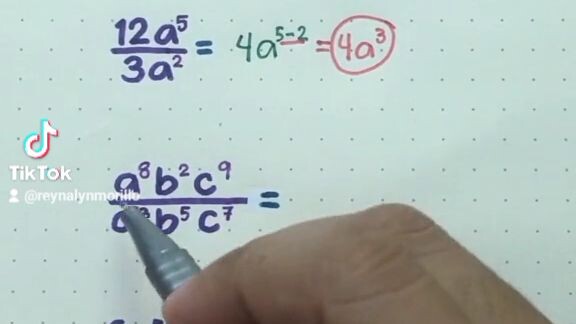 12a⁵/3a² = 4a⁵⁻² = 4a³
TikTok
@reynalynmorillo
a⁸b²c⁹/b⁵c⁷ =